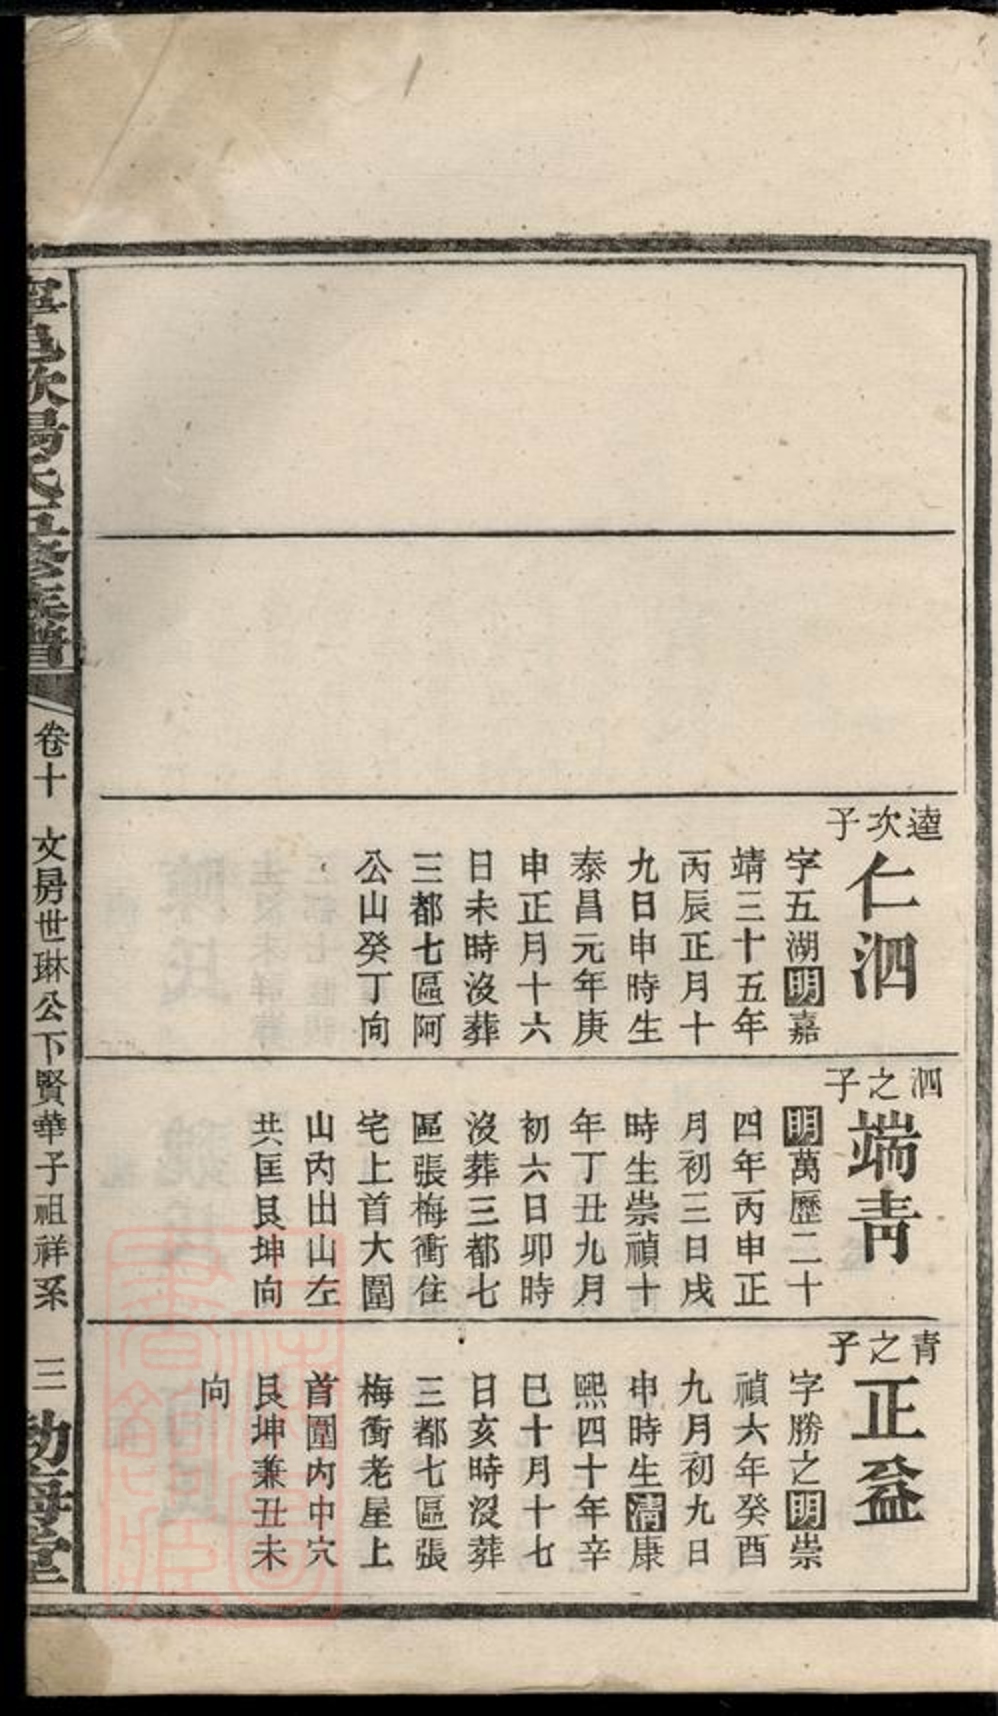 逵次子
仁泗
字五湖明嘉
靖三十五年
丙辰正月十
九日申時生
泰昌元年庚
申正月十六
日未時沒葬
三都七區阿
公山癸丁向
泗之子
端青
明萬歷二十
四年丙申正
月初三日戌
時生崇禎十
年丁丑九月
初六日卯時
沒葬三都七
區張梅衝住
宅上首大圍
山內出山左
共匡艮坤向
青之子
正益
字勝之明崇
禎六年癸酉
九月初九日
申時生清康
熙四十年辛
巳十月十七
日亥時沒葬
三都七區張
梅衝老屋上
首圍內中穴
艮坤兼丑未
向
寧邑歐陽氏五修族譜
卷十 文房世琳公下賢華子祖祥系 三